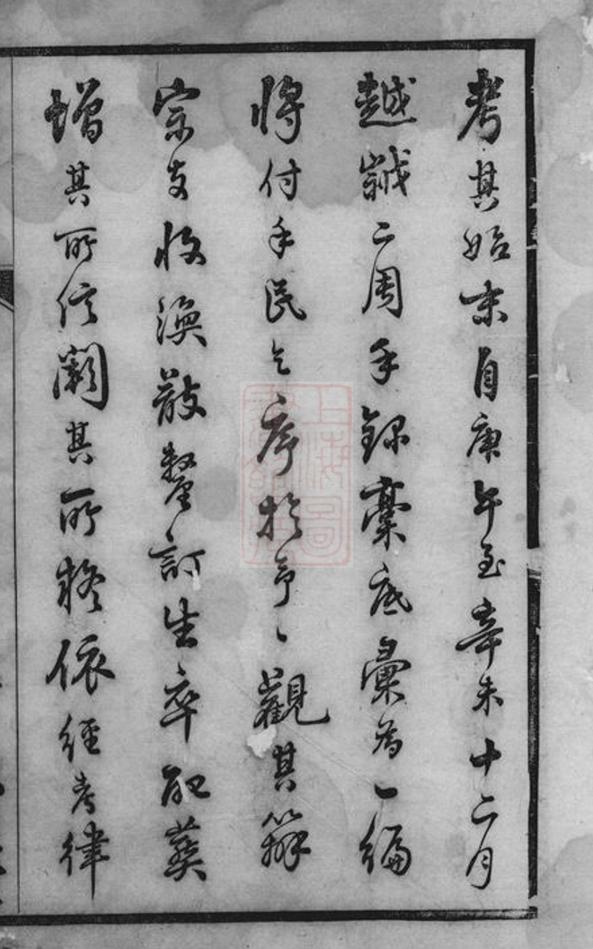 考其始末自庚午至辛未十二月
越誠二周手錄藁底彙為一編
將付手民乞序於予予觀其辨
宗支收渙散釐訂生卒配葬
增其所信闕其所疑依經考律